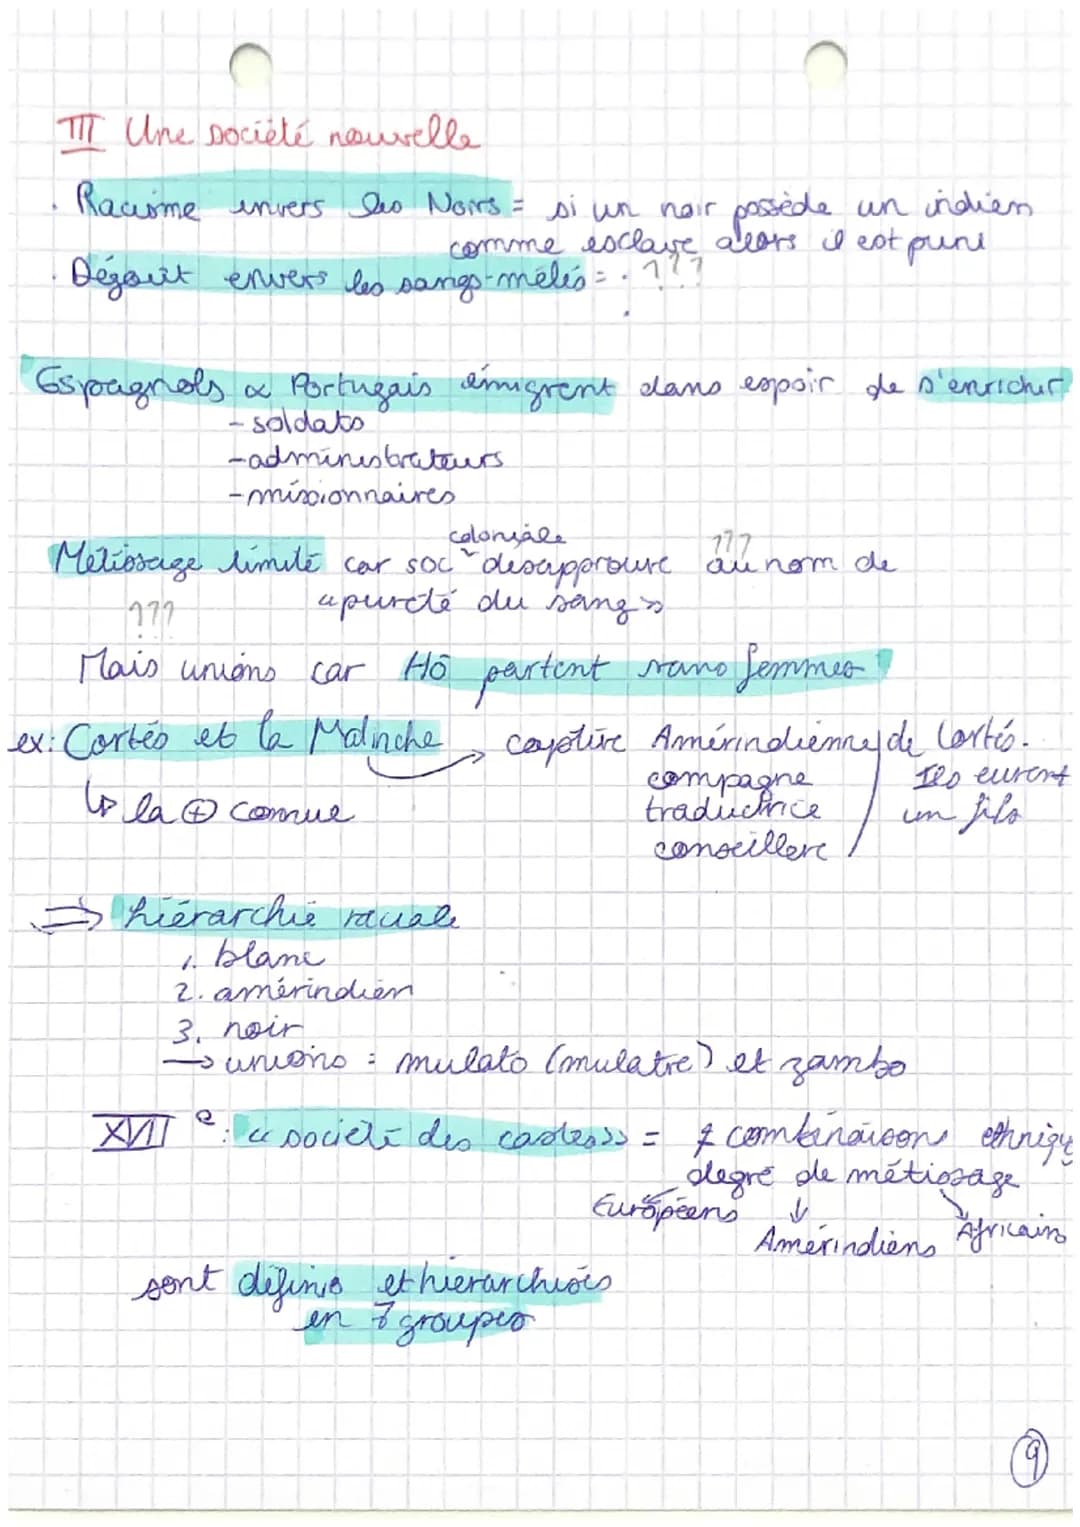 III Une société nouvelle
. Racisme envers les Noirs = si un noir possède un indien
comme esclave alors il est puni
. Dégoût envers les sangs-mêlés = . ???
.
Espagnols & Portugais émigrent dans espoir de s'enrichir
- soldats
- administrateurs
- missionnaires
coloniale ???
Métissage limité car soc ̌ désapprouve au nom de
??? « pureté du sang »
Mais unions car Hō partent sans femmes
ex: Cortés et la Malinche → captive Amérindienne de Cortés.
compagne Ils eurent
↳ la ⊕ connue traductrice un fils
conseillère
⇒ hiérarchie raciale
1. blanc
2. amérindien
3. noir
→ unions : mulato (mulatre) et zambo
XVII e : « société des castes » = ≠ combinaisons ethniq
degré de métissage
Européens ↓ Africains
Amérindiens
sont définis et hiérarchisés
en 7 groupes
9